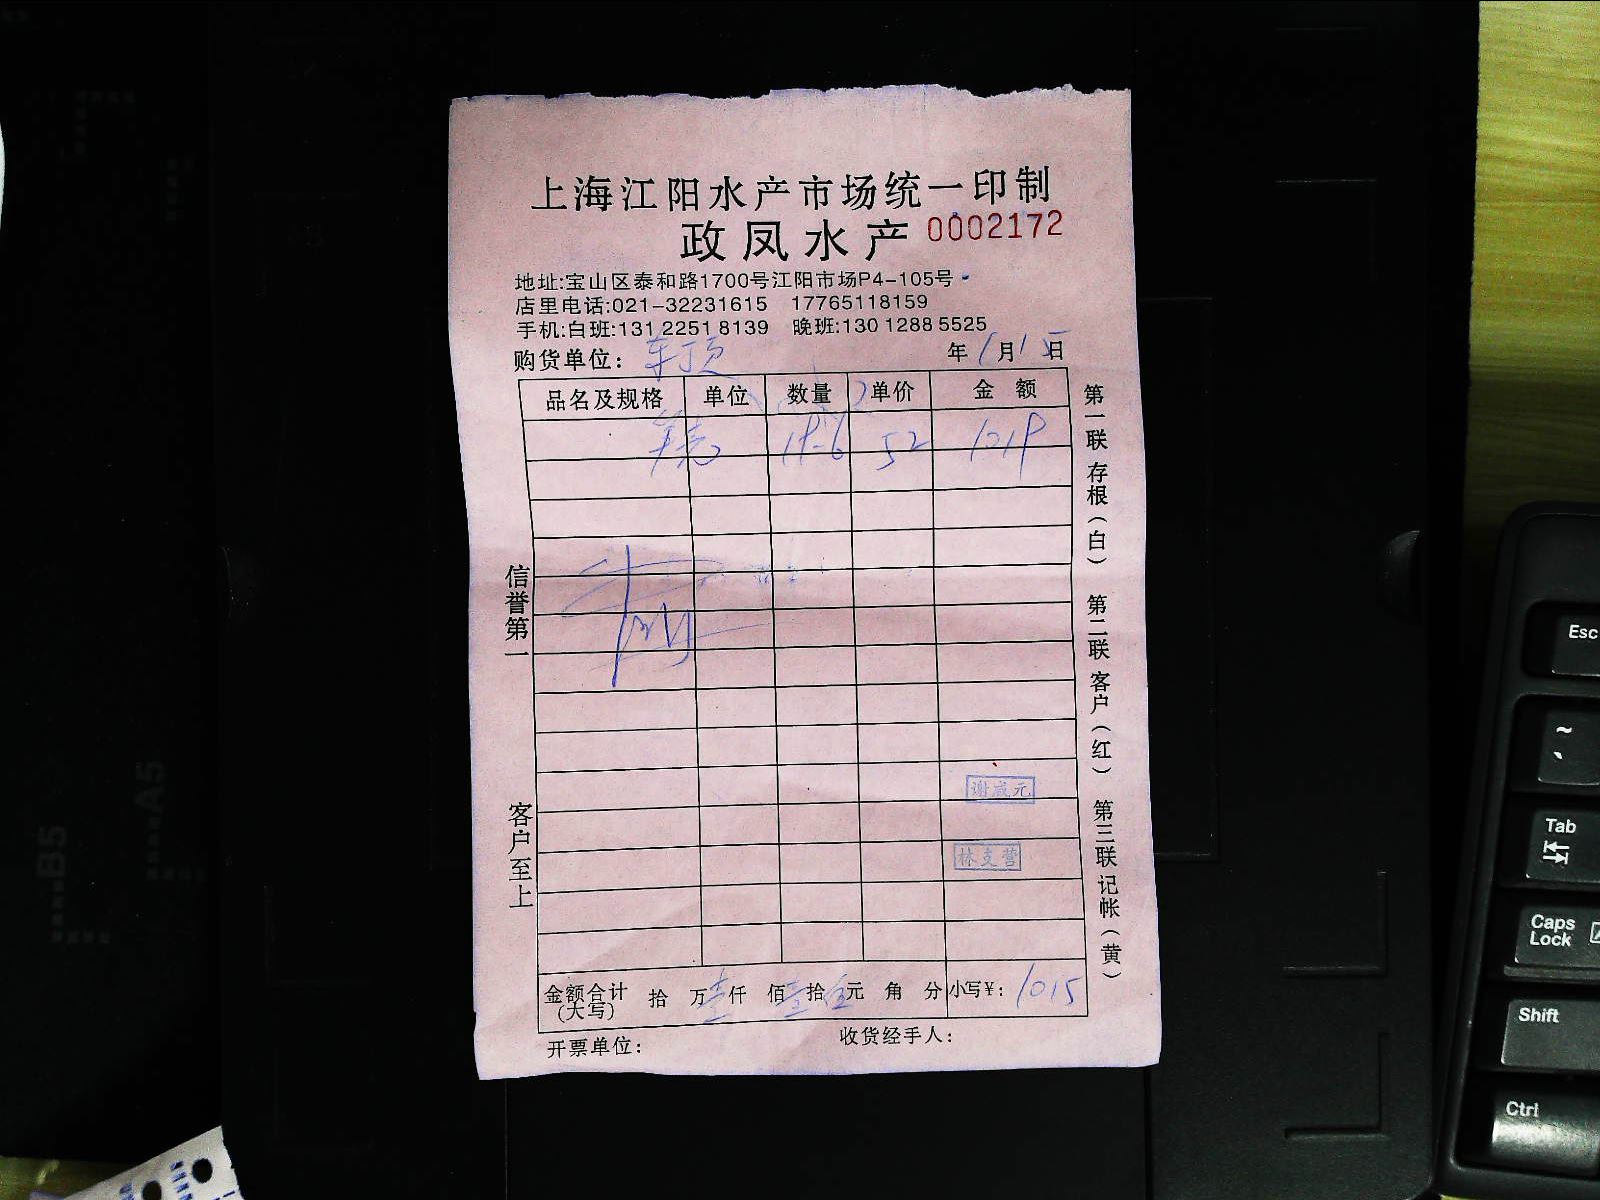 上海江阳水产市场统一印制
政凤水产 0002172
地址:宝山区泰和路1700号江阳市场P4-105号
店里电话:021-32231615 17765118159
手机:白班:131 2251 8139 晚班:130 1288 5525
购货单位: 车顶 年 1月15日
品名及规格 单位 数量 单价 金额
19.6 52 1019
信誉第一
客户至上
第一联存根(白) 第二联客户(红) 第三联记帐(黄)
谢咸元
林支营
金额合计(大写) 拾 万 仟 佰 拾 元 角 分 小写¥: 1015
开票单位: 收货经手人:
Esc
~
Tab
Caps Lock
Shift
Ctrl
B5
A5